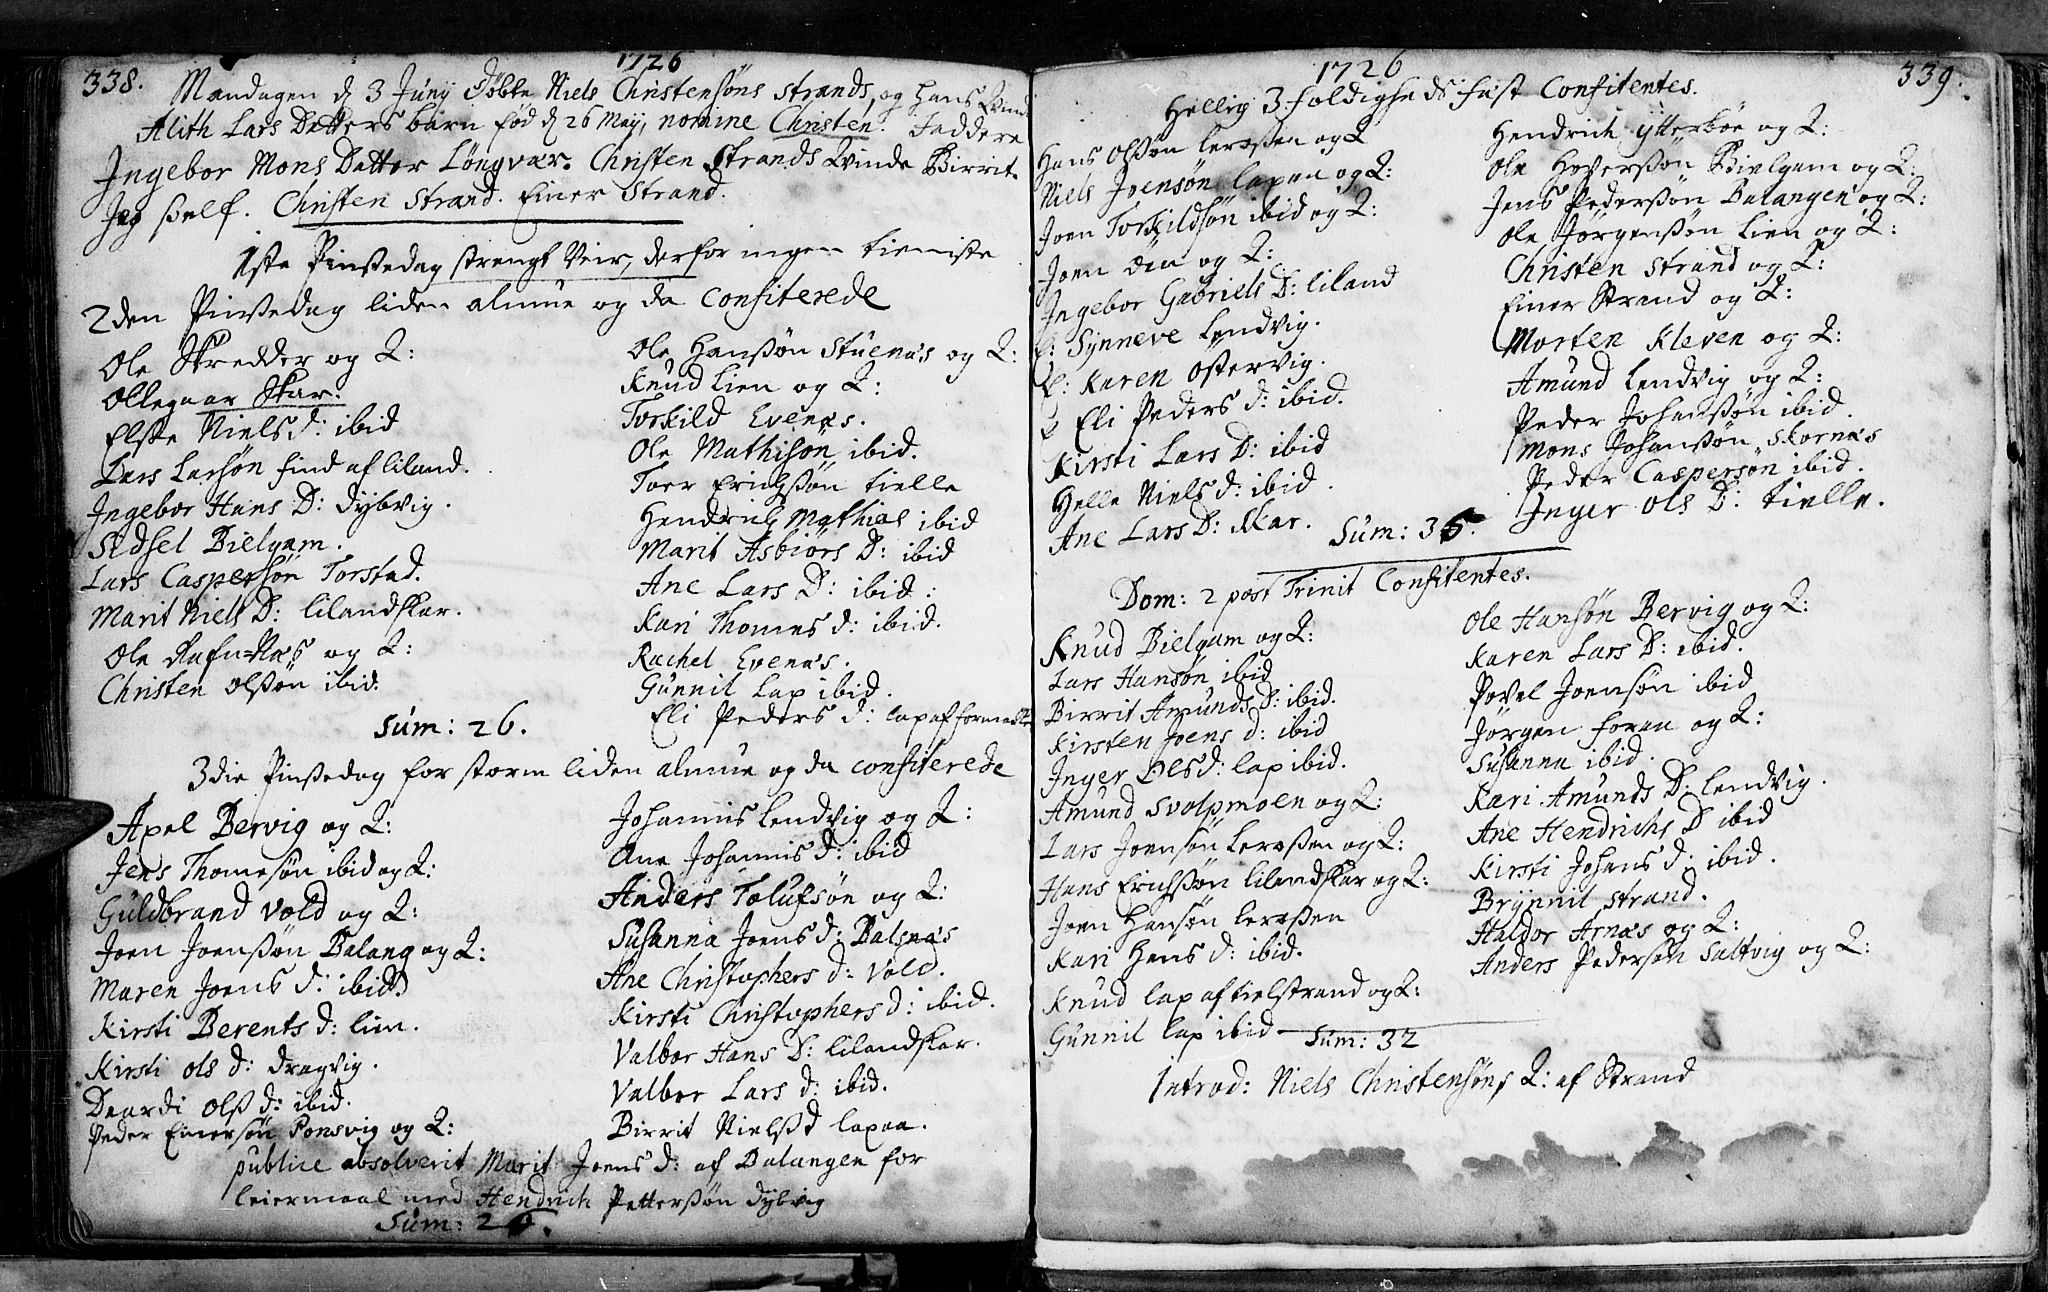 338.
1726
Mandagen d 3 Junij døbte Niels Christensøns Strands, og hans
Alith Lars Datters barn fød d 26 Maij, nomine Christen. Faddere
Ingebor Mons Datter Løngvær. Christen Strands Qvinde Birrit.
Jeg self. Christen Strand. Einer Strand.
1ste Pinßedag strengt Veir, derfor ingen tieniste
2den Pinßedag liden almue og da Confiterede
Ole Skredder og Q:
Ollegaar Skar.
Elße Niels d: ibid
Lars Larsøn find af liland.
Ingebor Hans D: Dybvig.
Sidsel Bielgam.
Lars Caspersøn Torstad.
Marit Niels D: lilandskar.
Ole Rafn-Næs og Q:
Christen Olßøn ibid.
Ole Hanßøn Stuenæs og Q:
Knud Lien og Q:
Torkild Evenæs.
Ole Mathisøn ibid.
Toer Erichßøn tielle
Hendrich Mathias ibid
Marit Asbiørs D: ibid
Ane Lars D: ibid:
Kari Thomes d: ibid.
Rachel Evenæs.
Gunnil Lap ibid.
Eli Peders d: lap af
Sum: 26.
3die Pinßedag for storm liden almue og da confiterede
Axel Bervig og Q:
Jens Thomesøn ibid og Q:
Guldbrand Vold og Q:
Joen Joenßøn Balang og Q:
Maren Joens d: ibid.
Kirsti Berents d: lien.
Kirsti Ols d: dragvig.
Daardi Olß d: ibid.
Peder Einersøn Ponsvig og Q:
Johannis Lendvig og Q:
Ane Johannis d: ibid
Anders Tolufsøn og Q:
Susanna Joens d: Balsnæs
Ane Christophers d: Vold.
Kirsti Christophers d: ibid.
Valbor Hans D: lilandskar.
Valbor Lars d: ibid.
Birrit Nielß d lapaa.
publice absolverit Marit Joens d: af Balangen for
leiermaal med Hendrich Petterßøn dybvig
Sum:
1726
339.
Hellig 3foldigheds fest Confitentes.
Hans Olßøn lervßen og Q
Niels Joensøn lapaa og Q:
Joen Torkildsøn ibid og Q:
Joen Øin og Q:
Ingebor Gabriels D: liland
Synneve Lendvig.
Karen Østervig.
Eli Peders d: ibid.
Kirsti Lars D: ibid
Helle Niels d: ibid.
Ane Lars D: Skar.
Hendrich Ytterbøe og Q:
Ole Bielgam og Q:
Jens Pederßøn Balangen og Q:
Ole Jørgenßøn Lien og Q:
Christen Strand og Q:
Einer Strand og Q:
Morten Kleven og Q:
Amund Lendvig og Q:
Peder Johanßøn ibid.
Mons Johanßøn Skornæs
Peder Caspersøn ibid.
Inger Ols D: tielle.
Sum: 35.
Dom: 2 post Trinit Confitentes.
Knud Bielgam og Q:
Lars Hansøn ibid
Birrit Amunds D: ibid.
Kirsten Joens d: ibid
Inger Ols d: lap ibid.
Amund Svolpmoen og Q:
Lars Joensøn Lervßen og Q:
Hans Erichßøn lilandskar og Q:
Joen Hansøn lervßen
Kari Hans d: ibid.
Knud lap af tielstrand og Q:
Gunnil lap ibid
Ole Hansøn Bervig og Q:
Karen Lars D: ibid.
Povel Joensøn ibid
Jørgen Foraa og Q:
Susanna ibid.
Kari Amunds D: Lendvig.
Ane Hendrichs D ibid
Kirsti Johans d: ibid.
Brynnil Strand.
Haldor Arnæs og Q:
Anders Pedersøn Saltvig og Q:
Sum: 32
Introd: Niels Christensøns Q: af Strand